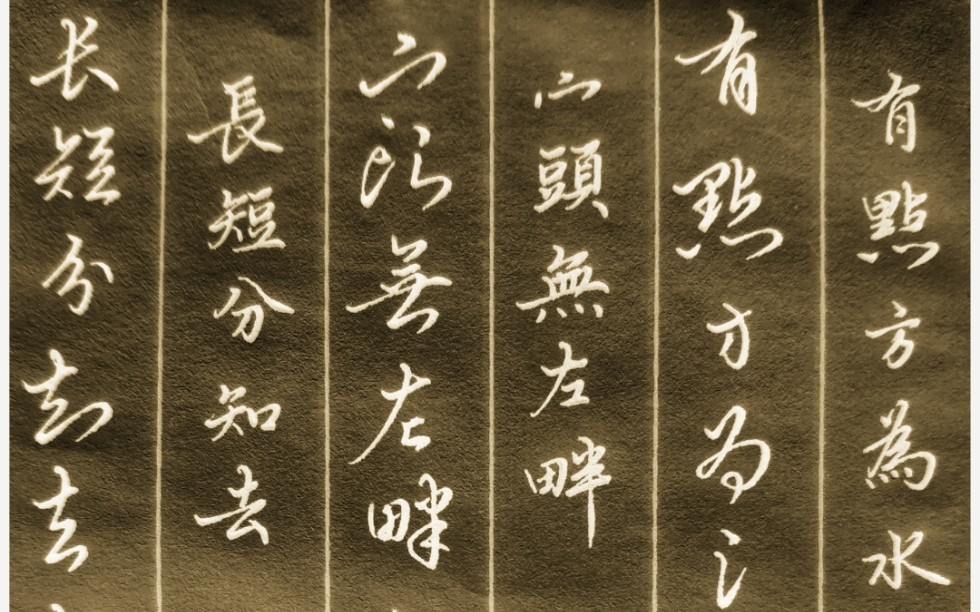 有點方為水
有點方為氵
宀頭無左畔
宀頭無左畔
長短分知去
長短分知去